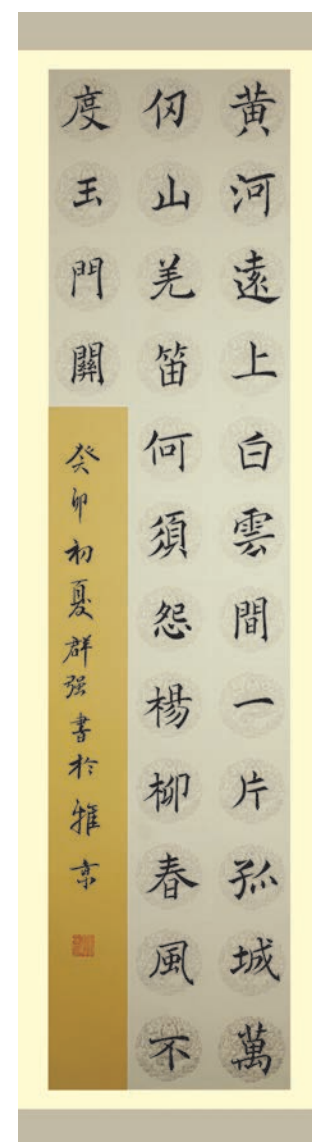 黄河遠上白雲間一片孤城萬
仞山羌笛何須怨楊柳春風不
度玉門關
癸卯初夏群强書於雅京